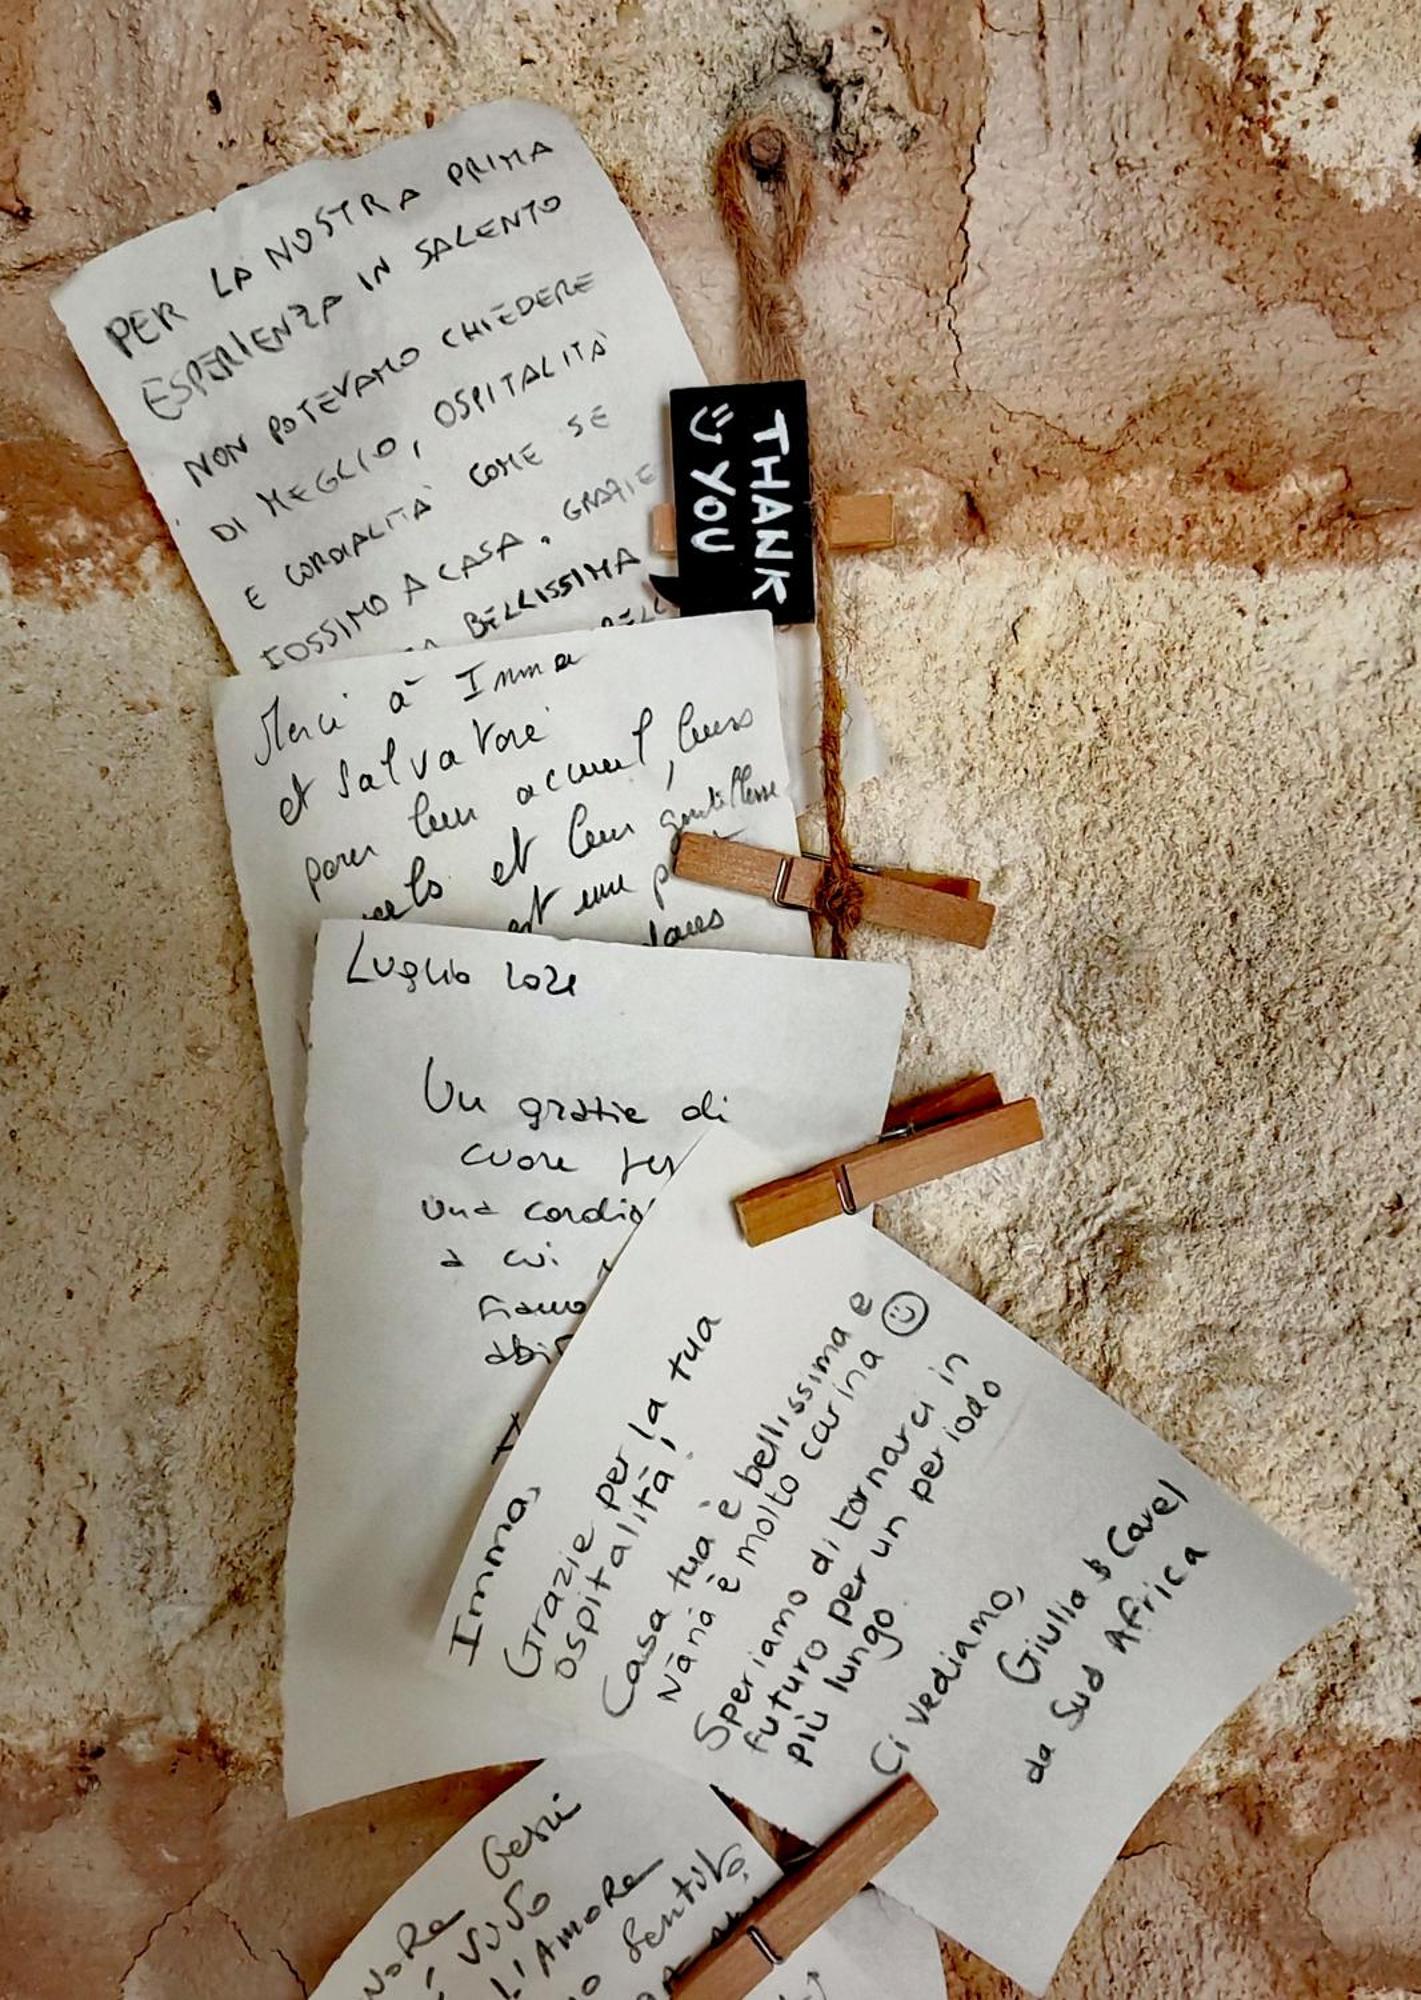 PER LA NOSTRA PRIMA
ESPERIENZA IN SALENTO
NON POTEVAMO CHIEDERE
DI MEGLIO, OSPITALITÀ
E CORDIALITÀ COME SE
FOSSIMO A CASA. GRAZIE
BELLISSIMA
THANK
YOU
Merci à Imma
et Salvatore
pour leur accueil, leurs
et leur gentillesse
est une
dans
Luglio 2021
Un grazie di
cuore per
una
a cui
siamo
Imma,
Grazie per la tua
ospitalità!
Casa tua è bellissima e
Nanà è molto carina
Speriamo di tornarci in
futuro per un periodo
più lungo.
Ci vediamo,
Giulia & Cavel
da Sud Africa
Gesù
L'AMORE